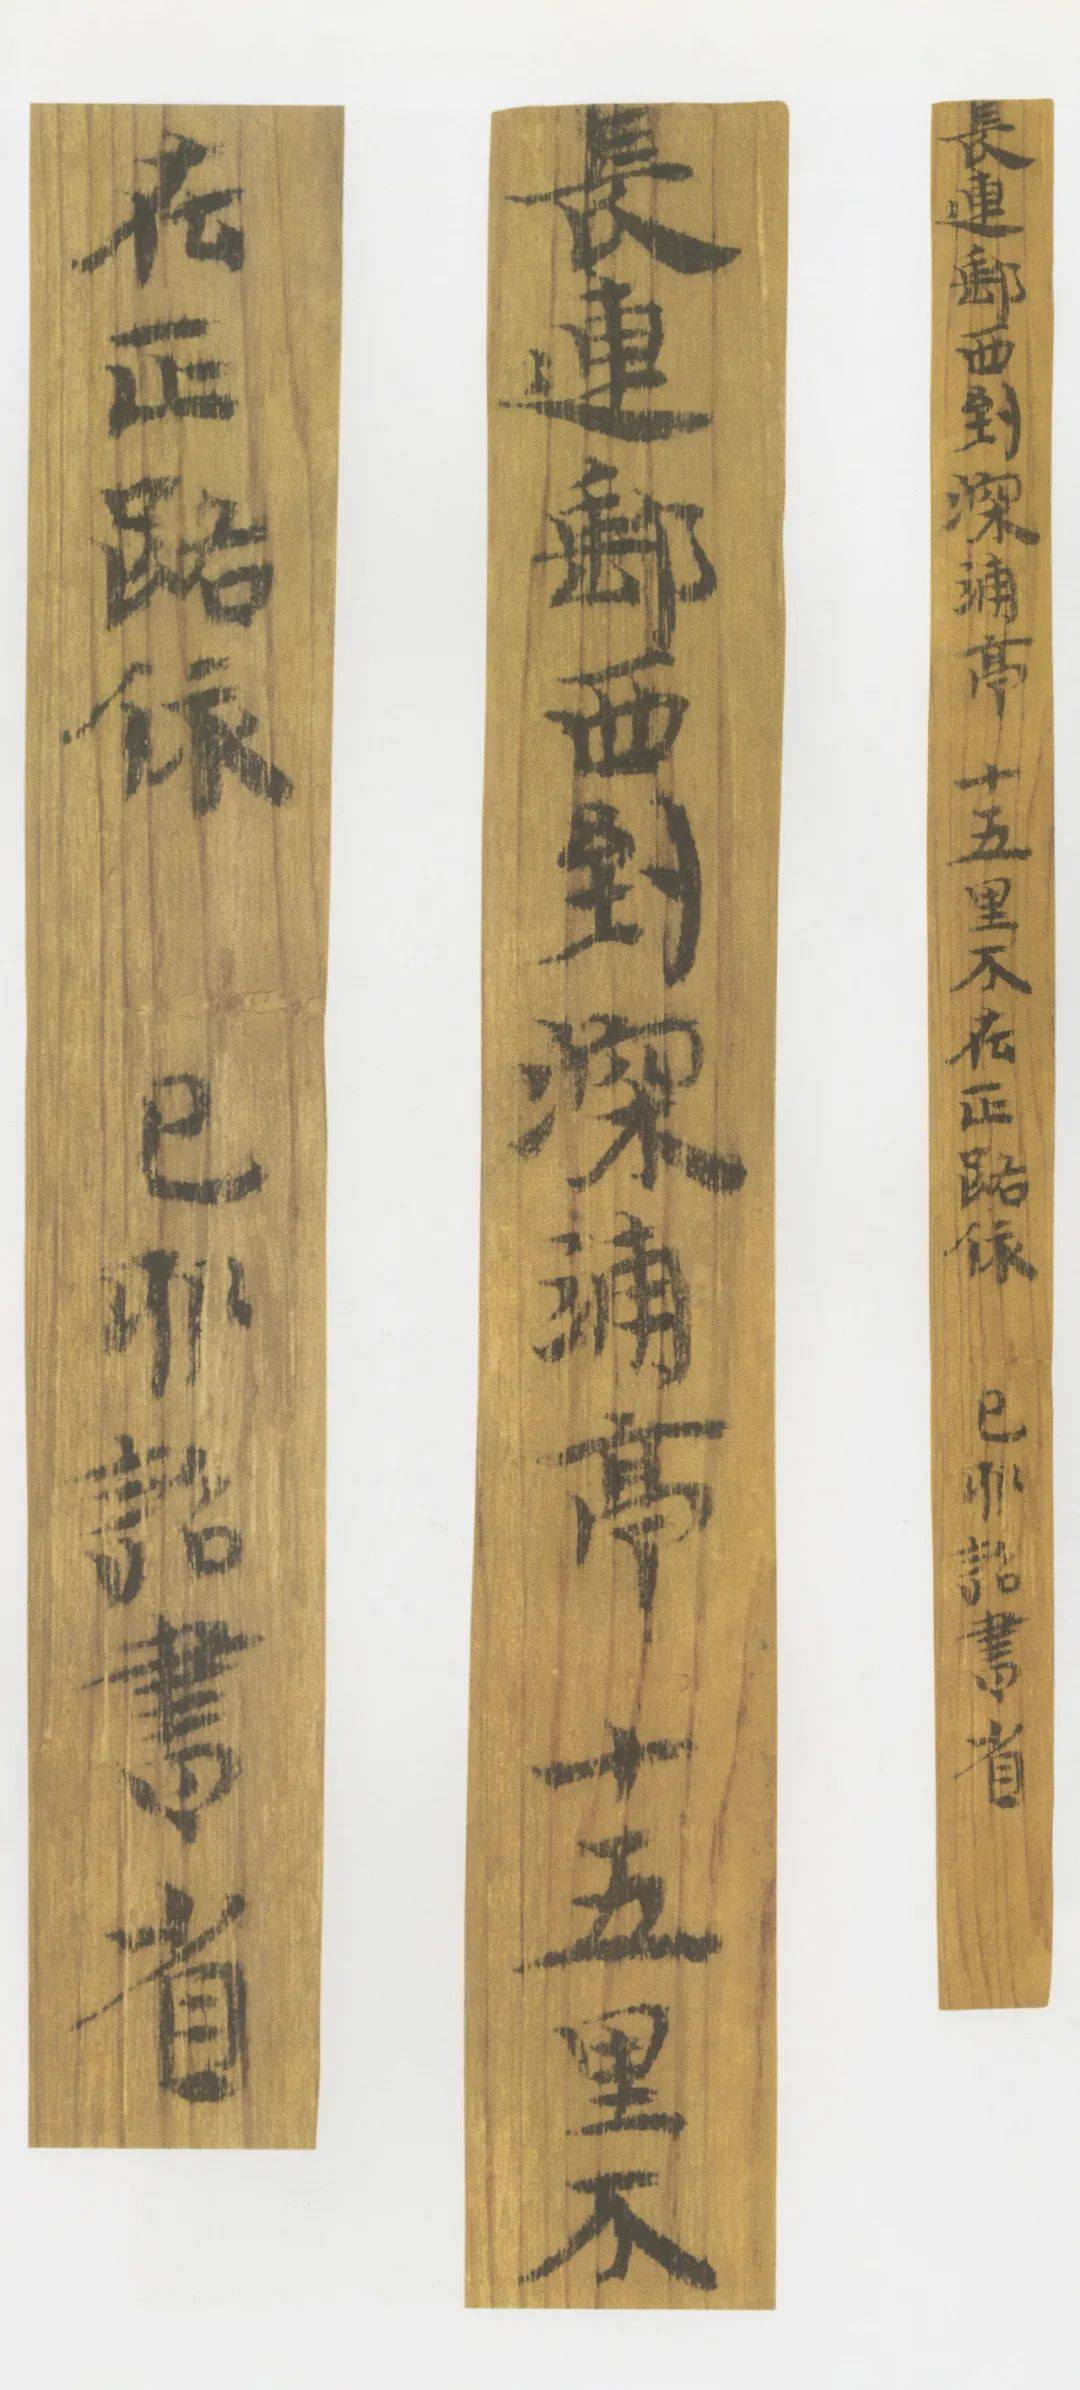 長連郵西到深浦亭 十五里不在正路依 已卯詔書省
長連郵西到深浦亭 十五里不
在正路依 已卯詔書省